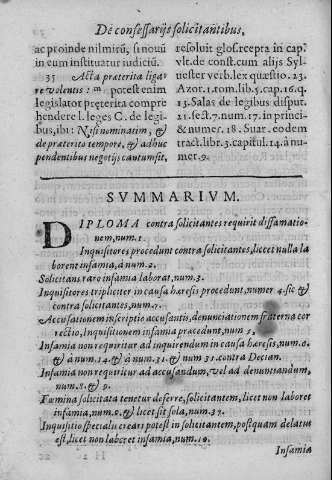 De confessarijs solicitantibus,
ac proinde nil mirū, si nouū
in eum instituatur iudiciū.
35 Acta præterita ligare
volentis: potest enim
legislator præterita comprehendere
l. leges C. de legibus,
ibi: Nisi nominatim, &
de præterito tempore, & adhuc
pendentibus negotijs cautum sit,
resoluit glos. recepta in cap.
vlt. de const. cum alijs Syluester
verb. lex quæstio. 23.
Azor. 1. tom. lib. 5. cap. 16. q.
13. Salas de legibus disput.
21. sect. 7. num. 17. in princi.
& numer. 18. Suar. eodem
tract. lib. 3. capitul. 14. à numer.
9.
SVMMARIVM.
DIPLOMA contra solicitantes requirit diffamationem,
num. 1.
Inquisitores procedunt contra solicitantes, licet nulla laborent
infamia, à num. 2.
Solicitans raro infamia laborat, num. 3.
Inquisitores tripliciter in causa hæresis procedunt, numer. 4. sic &
contra solicitantes, num. 7.
Accusationem inscriptio accusantis, denunciationem fraterna correctio,
Inquisitionem infamia præcedunt, num. 5.
Infamia non requiritur ad inquirendum in causa hæresis, num. 6.
& à num. 14. & à num. 31. & num 31. contra Decian.
Infamia non requiritur ad accusandum, vel ad denuntiandum,
num. 8. & 9.
Fœmina solicitata tenetur deferre, solicitantem, licet non laboret
infamia, num. 9. & licet sit sola, num. 37.
Inquisitio specialis creari potest in solicitantem, postquam delatus
est, licet non laboret infamia, num. 10.
Infamia